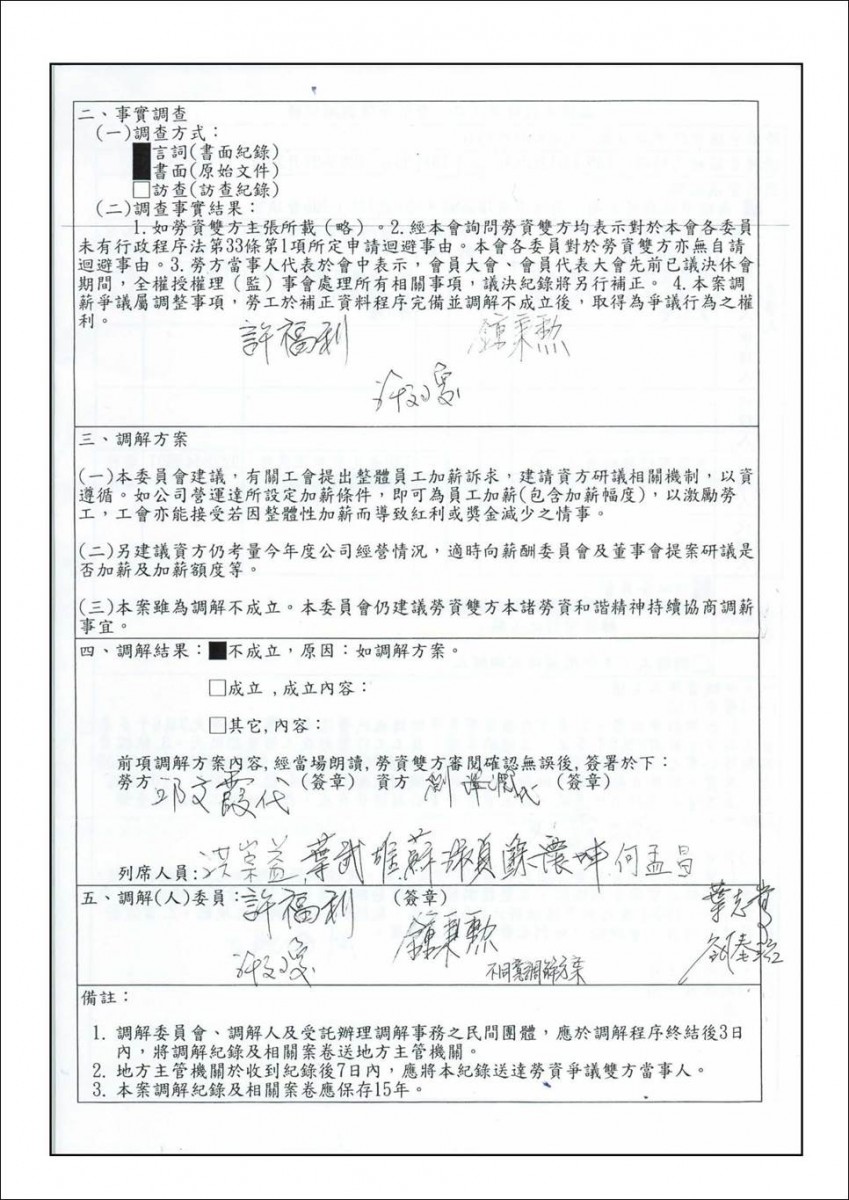 二、事實調查
(一)調查方式：
■言詞(書面紀錄)
■書面(原始文件)
□訪查(訪查紀錄)
(二)調查事實結果：
1.如勞資雙方主張所載（略）。2.經本會詢問勞資雙方均表示對於本會各委員
未有行政程序法第33條第1項所定申請迴避事由。本會各委員對於勞資雙方亦無自請
迴避事由。3.勞方當事人代表於會中表示，會員大會、會員代表大會先前已議決休會
期間，全權授權理（監）事會處理所有相關事項，議決紀錄將另行補正。 4.本案調
薪爭議屬調整事項，勞工於補正資料程序完備並調解不成立後，取得為爭議行為之權
利。
許福利 鍾秉勲
三、調解方案
(一)本委員會建議，有關工會提出整體員工加薪訴求，建請資方研議相關機制，以資
遵循。如公司營運達所設定加薪條件，即可為員工加薪(包含加薪幅度)，以激勵勞
工，工會亦能接受若因整體性加薪而導致紅利或獎金減少之情事。
(二)另建議資方仍考量今年度公司經營情況，適時向薪酬委員會及董事會提案研議是
否加薪及加薪額度等。
(三)本案雖為調解不成立。本委員會仍建議勞資雙方本諸勞資和諧精神持續協商調薪
事宜。
四、調解結果：■不成立，原因：如調解方案。
□成立，成立內容：
□其它，內容：
前項調解方案內容，經當場朗讀，勞資雙方審閱確認無誤後，簽署於下：
勞方 邱文霞代 （簽章） 資方 （簽章）
列席人員: 洪崇益 葉武雄 何孟昌
五、調解(人)委員： 許福利 （簽章）
鍾秉勲
不同意調解方案
備註：
1. 調解委員會、調解人及受託辦理調解事務之民間團體，應於調解程序終結後3日
內，將調解紀錄及相關案卷送地方主管機關。
2. 地方主管機關於收到紀錄後7日內，應將本紀錄送達勞資爭議雙方當事人。
3. 本案調解紀錄及相關案卷應保存15年。